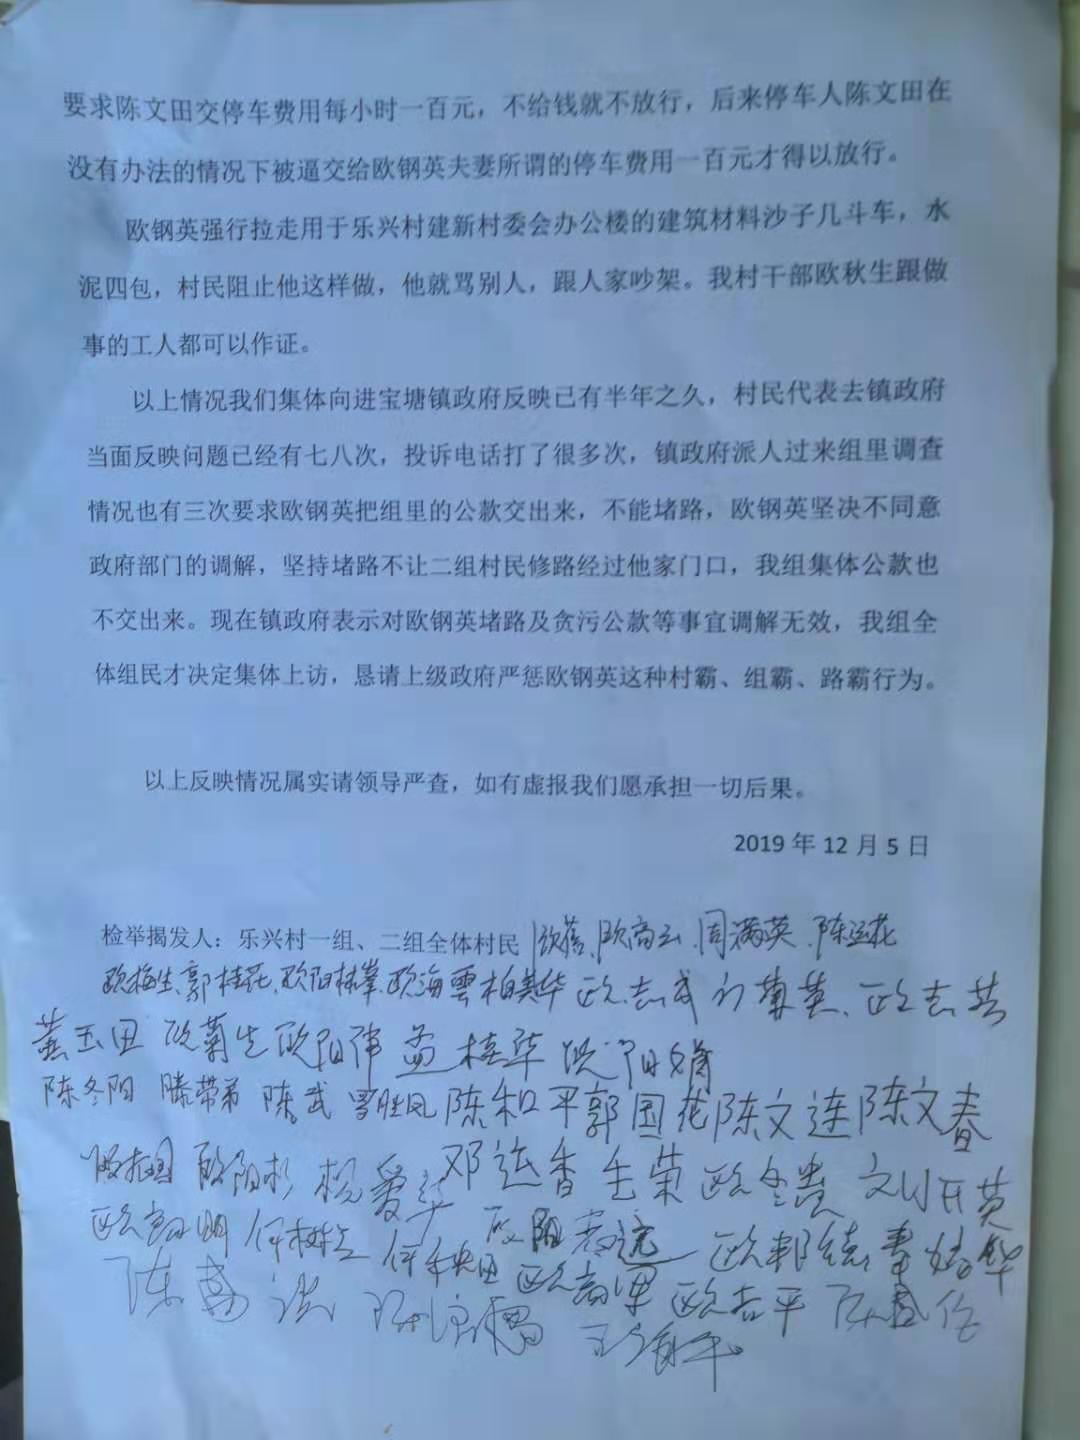 要求陈文田交停车费用每小时一百元，不给钱就不放行，后来停车人陈文田在
没有办法的情况下被逼交给欧钢英夫妻所谓的停车费用一百元才得以放行。
欧钢英强行拉走用于乐兴村建新村委会办公楼的建筑材料沙子几斗车，水
泥四包，村民阻止他这样做，他就骂别人，跟人家吵架。我村干部欧秋生跟做
事的工人都可以作证。
以上情况我们集体向进宝塘镇政府反映已有半年之久，村民代表去镇政府
当面反映问题已经有七八次，投诉电话打了很多次，镇政府派人过来组里调查
情况也有三次要求欧钢英把组里的公款交出来，不能堵路，欧钢英坚决不同意
政府部门的调解，坚持堵路不让二组村民修路经过他家门口，我组集体公款也
不交出来。现在镇政府表示对欧钢英堵路及贪污公款等事宜调解无效，我组全
体组民才决定集体上访，恳请上级政府严惩欧钢英这种村霸、组霸、路霸行为。
以上反映情况属实请领导严查，如有虚报我们愿承担一切后果。
2019 年 12 月 5 日
检举揭发人：乐兴村一组、二组全体村民 周满英、陈运花
欧梅生、郭桂花、欧阳林峯、欧海雲 柏美华 欧志成
黄玉田 欧菊生 孟桂华
陈冬阳 滕带弟 陈武 罗胜凤 陈和平 郭国花 陈文连 陈文春
欧阳杉 杨爱华 邓运香 毛荣 欧冬贵 刘开英
何树立 欧邦德
欧吉平